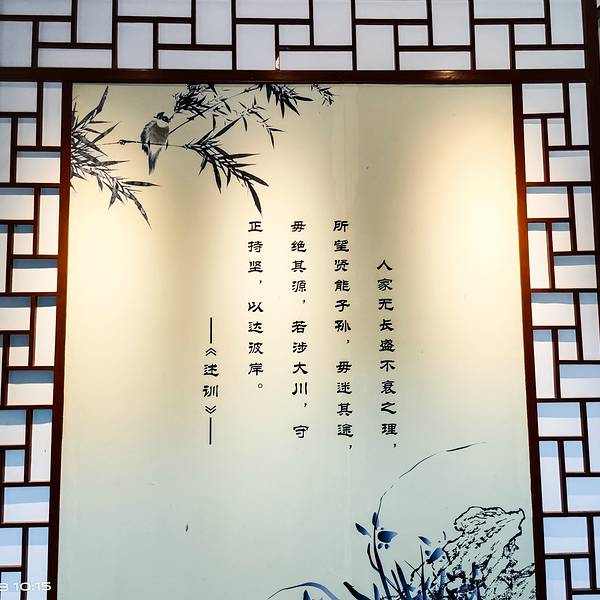 人家无长盛不衰之理，
所望贤能子孙，毋迷其途，
毋绝其源，若涉大川，守
正持坚，以达彼岸。
——《述训》——
10:15